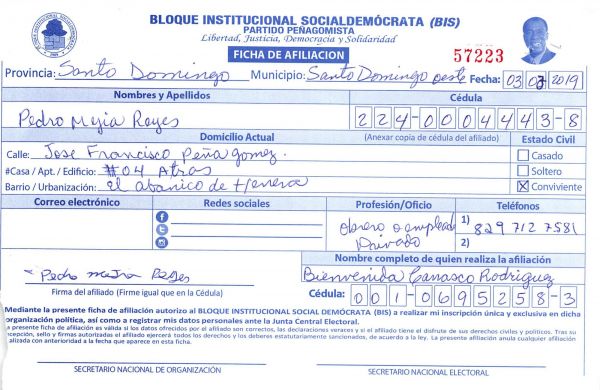 BLOQUE INSTITUCIONAL SOCIALDEMÓCRATA (BIS)
PARTIDO PEÑAGOMISTA
Libertad, Justicia, Democracia y Solidaridad
FICHA DE AFILIACION
57223
Provincia: Santo Domingo Municipio: Santo Domingo oeste Fecha: 03 07 2019
Nombres y Apellidos Cédula
Pedro Mejia Reyes 224-0004443-8
Domicilio Actual (Anexar copia de cédula del afiliado) Estado Civil
Calle: Jose Francisco Peña gomez. Casado
#Casa / Apt. / Edificio: #04 Atras Soltero
Barrio / Urbanización: el abanico de Herrera X Conviviente
Correo electrónico Redes sociales Profesión/Oficio Teléfonos
obrero o empleado 1) 829 712 7581
Privado 2)
Nombre completo de quien realiza la afiliación
Pedro Reyes Bienvenida Carrasco Rodriguez
Firma del afiliado (Firme igual que en la Cédula) Cédula: 001-0695258-3
Mediante la presente ficha de afiliación autorizo al BLOQUE INSTITUCIONAL SOCIAL DEMÓCRATA (BIS) a realizar mi inscripción única y exclusiva en dicha
organización política, así como a registrar mis datos personales ante la Junta Central Electoral.
a presente ficha de afiliación es válida si los datos ofrecidos por el afiliado son correctos, las declaraciones veraces y si el afiliado tiene el disfrute de sus derechos civiles y políticos. Tras su
cepción, sello y firmas autorizadas el afiliado ejercerá todos los derechos y los deberes estatutariamente sancionados, de acuerdo a la ley. La presente afiliación anula cualquier afiliación
alizada con anterioridad a la fecha que aparece en esta ficha.
SECRETARIO NACIONAL DE ORGANIZACIÓN SECRETARIO NACIONAL ELECTORAL